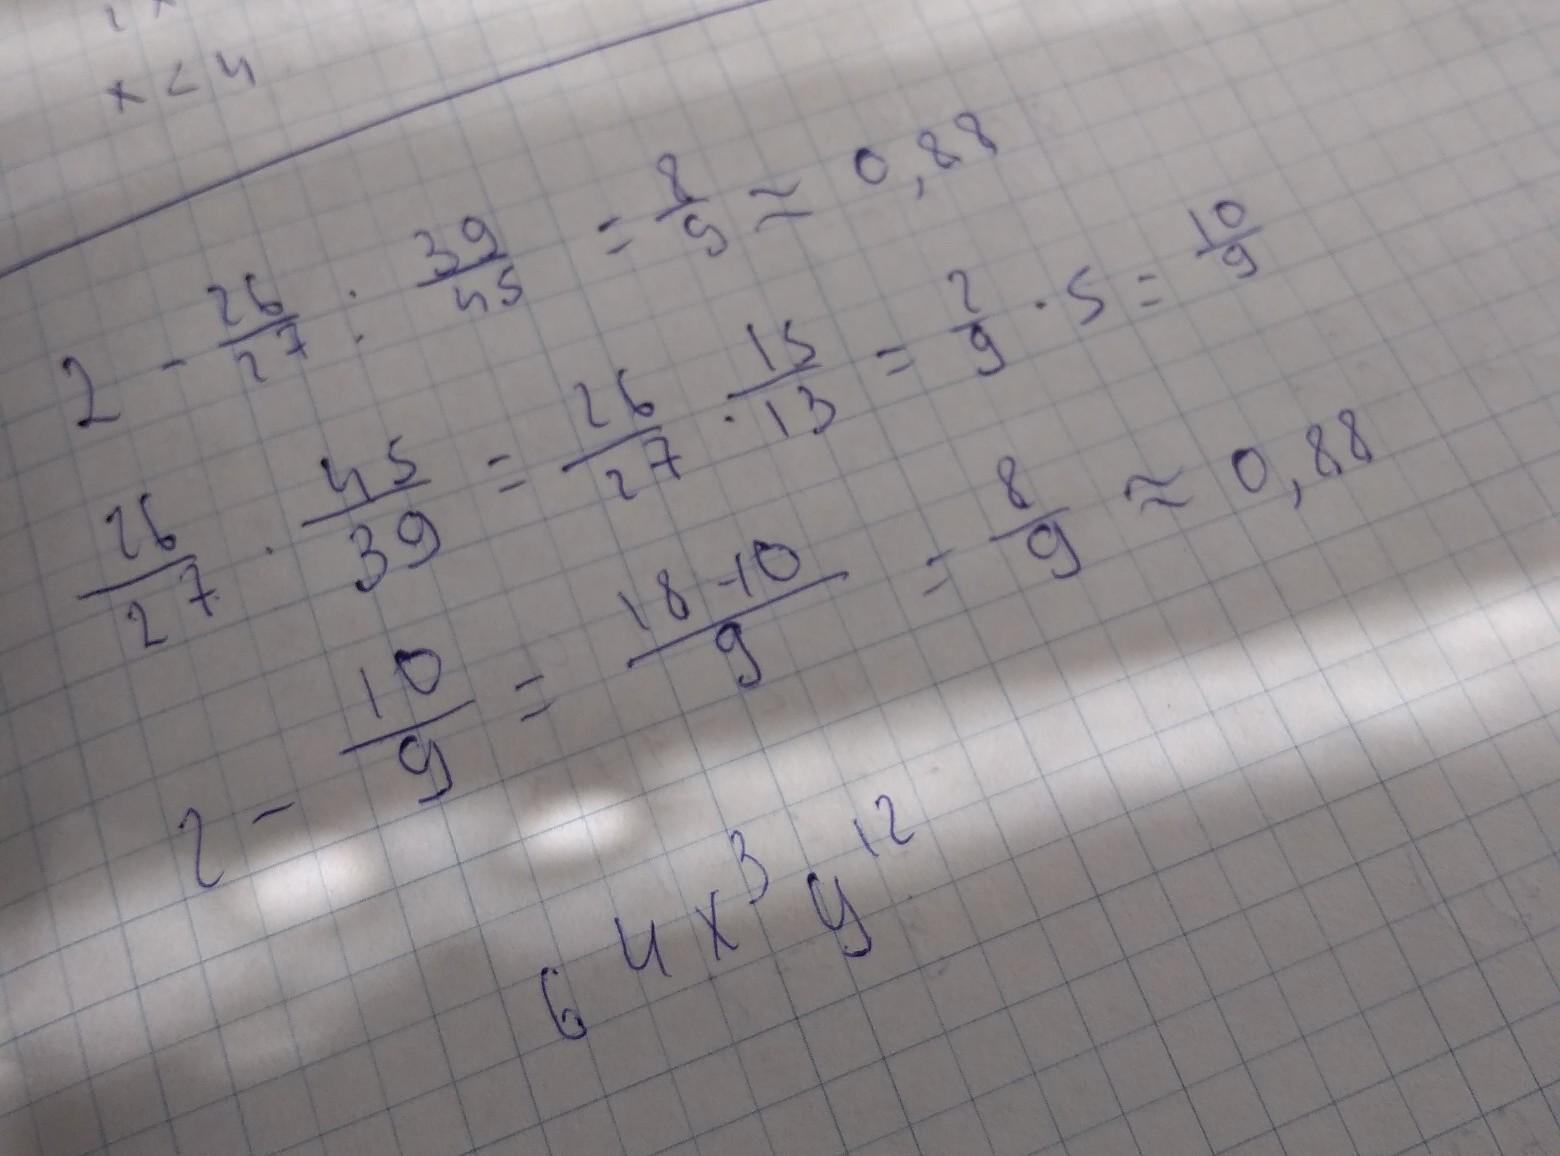 x < 4
2 - 26/27 : 39/45 = 8/9 ≈ 0,88
26/27 · 45/39 = 26/27 · 15/13 = 2/9 · 5 = 10/9
2 - 10/9 = 18-10/9 = 8/9 ≈ 0,88
64x³y¹²